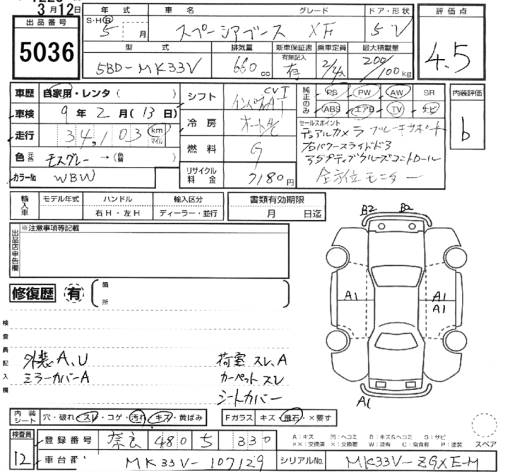 3月12日
出品番号 5036
年式 グレード ドア・形状 評価点
S・H・R 5年 月 スペーシアベース XF 5V 4.5
型式 排気量 新車保証書 乗車定員 最大積載量
5BD-MK33V 660cc 有無記入 有 2/4人 200/100kg
車歴 自家用・レンタ( ) シフト CVT インパネAT 純正のみ PS PW AW SR 内装評価
車検 9年2月(13日) 冷房 オートAC ABS エアB TV ナビ b
走行 34,103 km マイル セールスポイント
デュアルカメラ ブレーキサポート
色 元色 モスグレー→( 替) 燃料 G 右パワースライドドア
アダプティブクルーズコントロール
カラーNo WBW リサイクル料金 7180円 全方位モニター
輸入車 モデル年式 ハンドル 輸入区分 書類有効期限
右H・左H ディーラー・並行 月 日迄
出品店申告欄 ※注意事項等記載
修復歴 有 ( 箇所 )
B2 B2
A1 A1
A1
検査員記入欄
外装A、U 荷室スレ、A
ミラーカバーA カーペットスレ
シートカバー
内装シート 穴・破れ・スレ・コゲ・汚れ・キズ・黄ばみ Fガラス キズ・飛石・×要す
A:キズ U:ヘコミ B:キズ&ヘコミ S:サビ
スペア
検査員 12 登録番号 奈良 480 ち 330
車台番 MK33V-107129 シリアルNo. MK33V-ZGXE-M